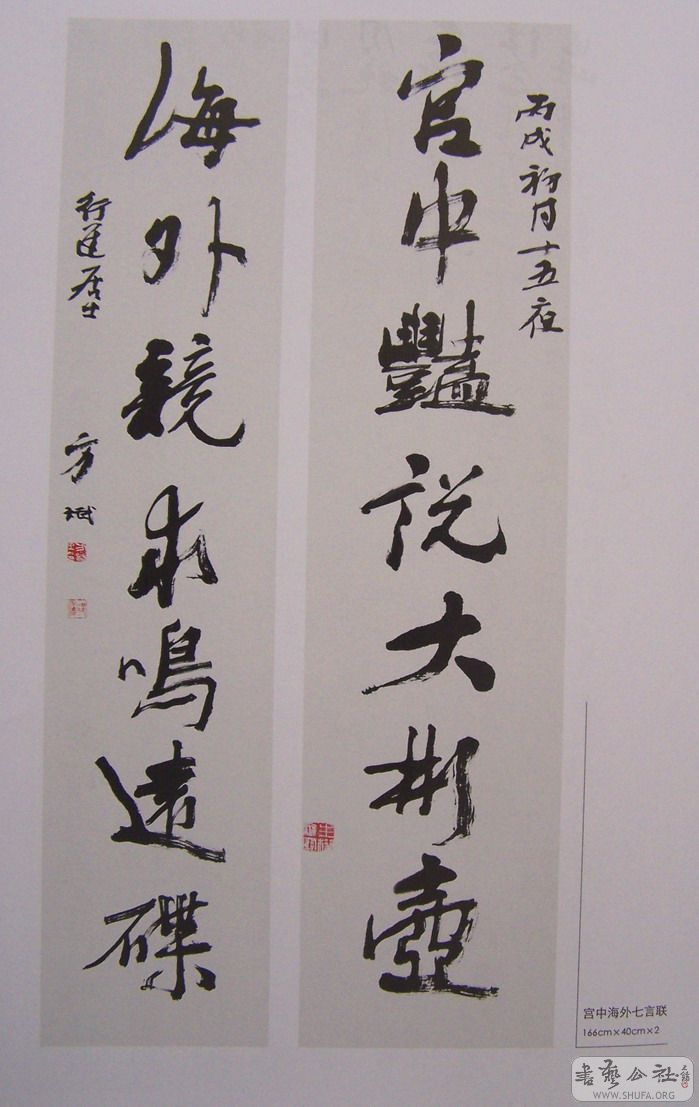 丙戌初月十五夜
宮中豔說大彬壺
海外競求鳴遠碟
行居士
方斌
宫中海外七言联
166cm×40cm×2
書藝公社
WWW.SHUFA.ORG